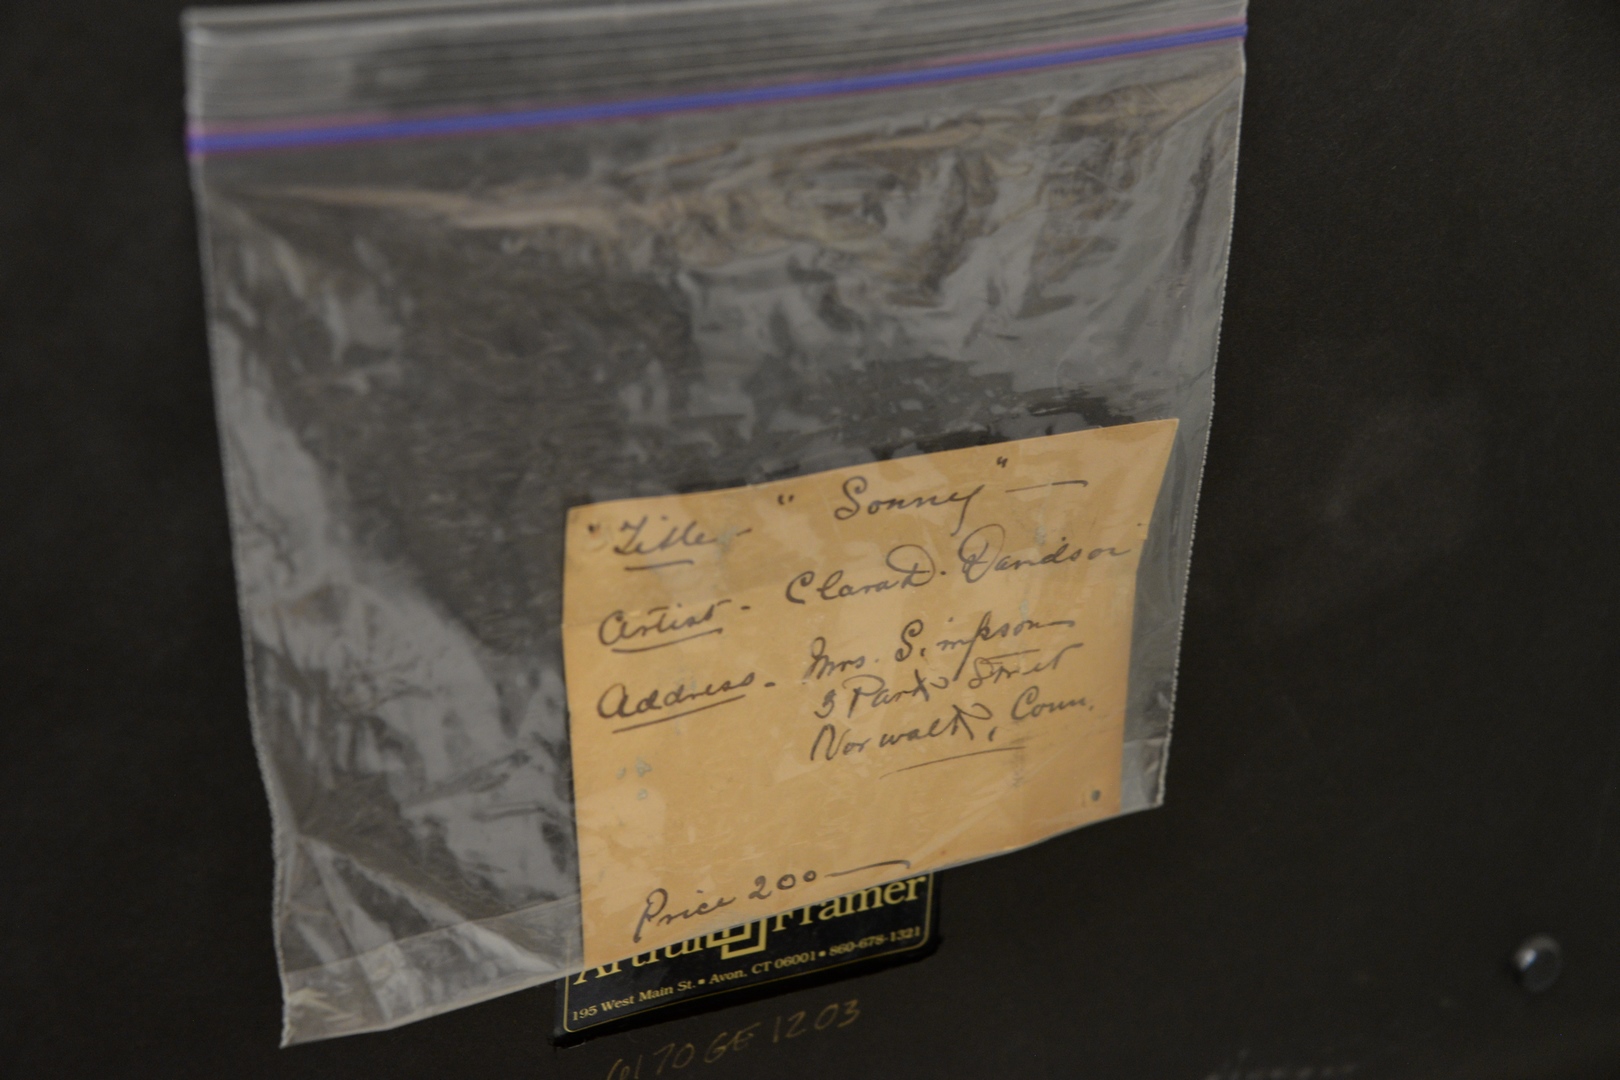 "Title - " Sonny" —
Artist - Clara D. Davidson
Address - Mrs. Simpson
3 Park Street
Norwalk, Conn.
Price 200 —
Framer
195 West Main St. • Avon, CT 06001 • 860-678-1321
6170GE1203